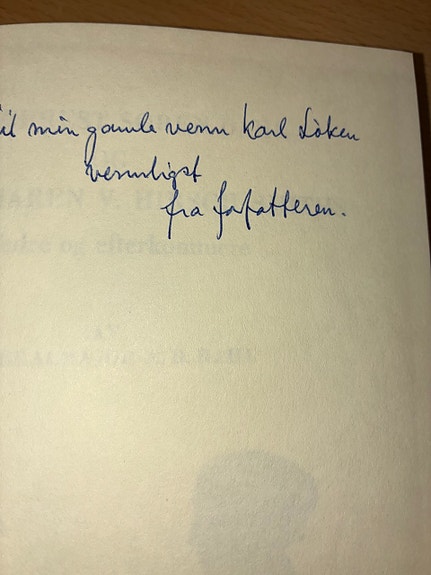 til min gamle venn Karl Löken
vennligst
fra forfatteren.
og efterkommere
AV